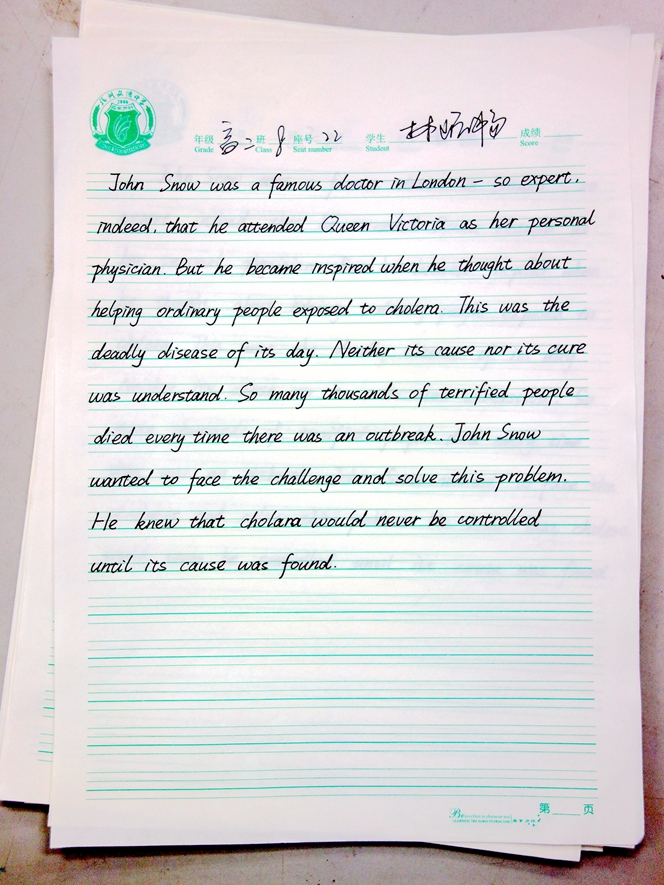 2008
年级 高二 班 8 座号 22 学生 林 成绩
Grade Class Seat number Student Score
John Snow was a famous doctor in London – so expert,
indeed, that he attended Queen Victoria as her personal
physician. But he became inspired when he thought about
helping ordinary people exposed to cholera. This was the
deadly disease of its day. Neither its cause nor its cure
was understand. So many thousands of terrified people
died every time there was an outbreak. John Snow
wanted to face the challenge and solve this problem.
He knew that cholara would never be controlled
until its cause was found.
第 页